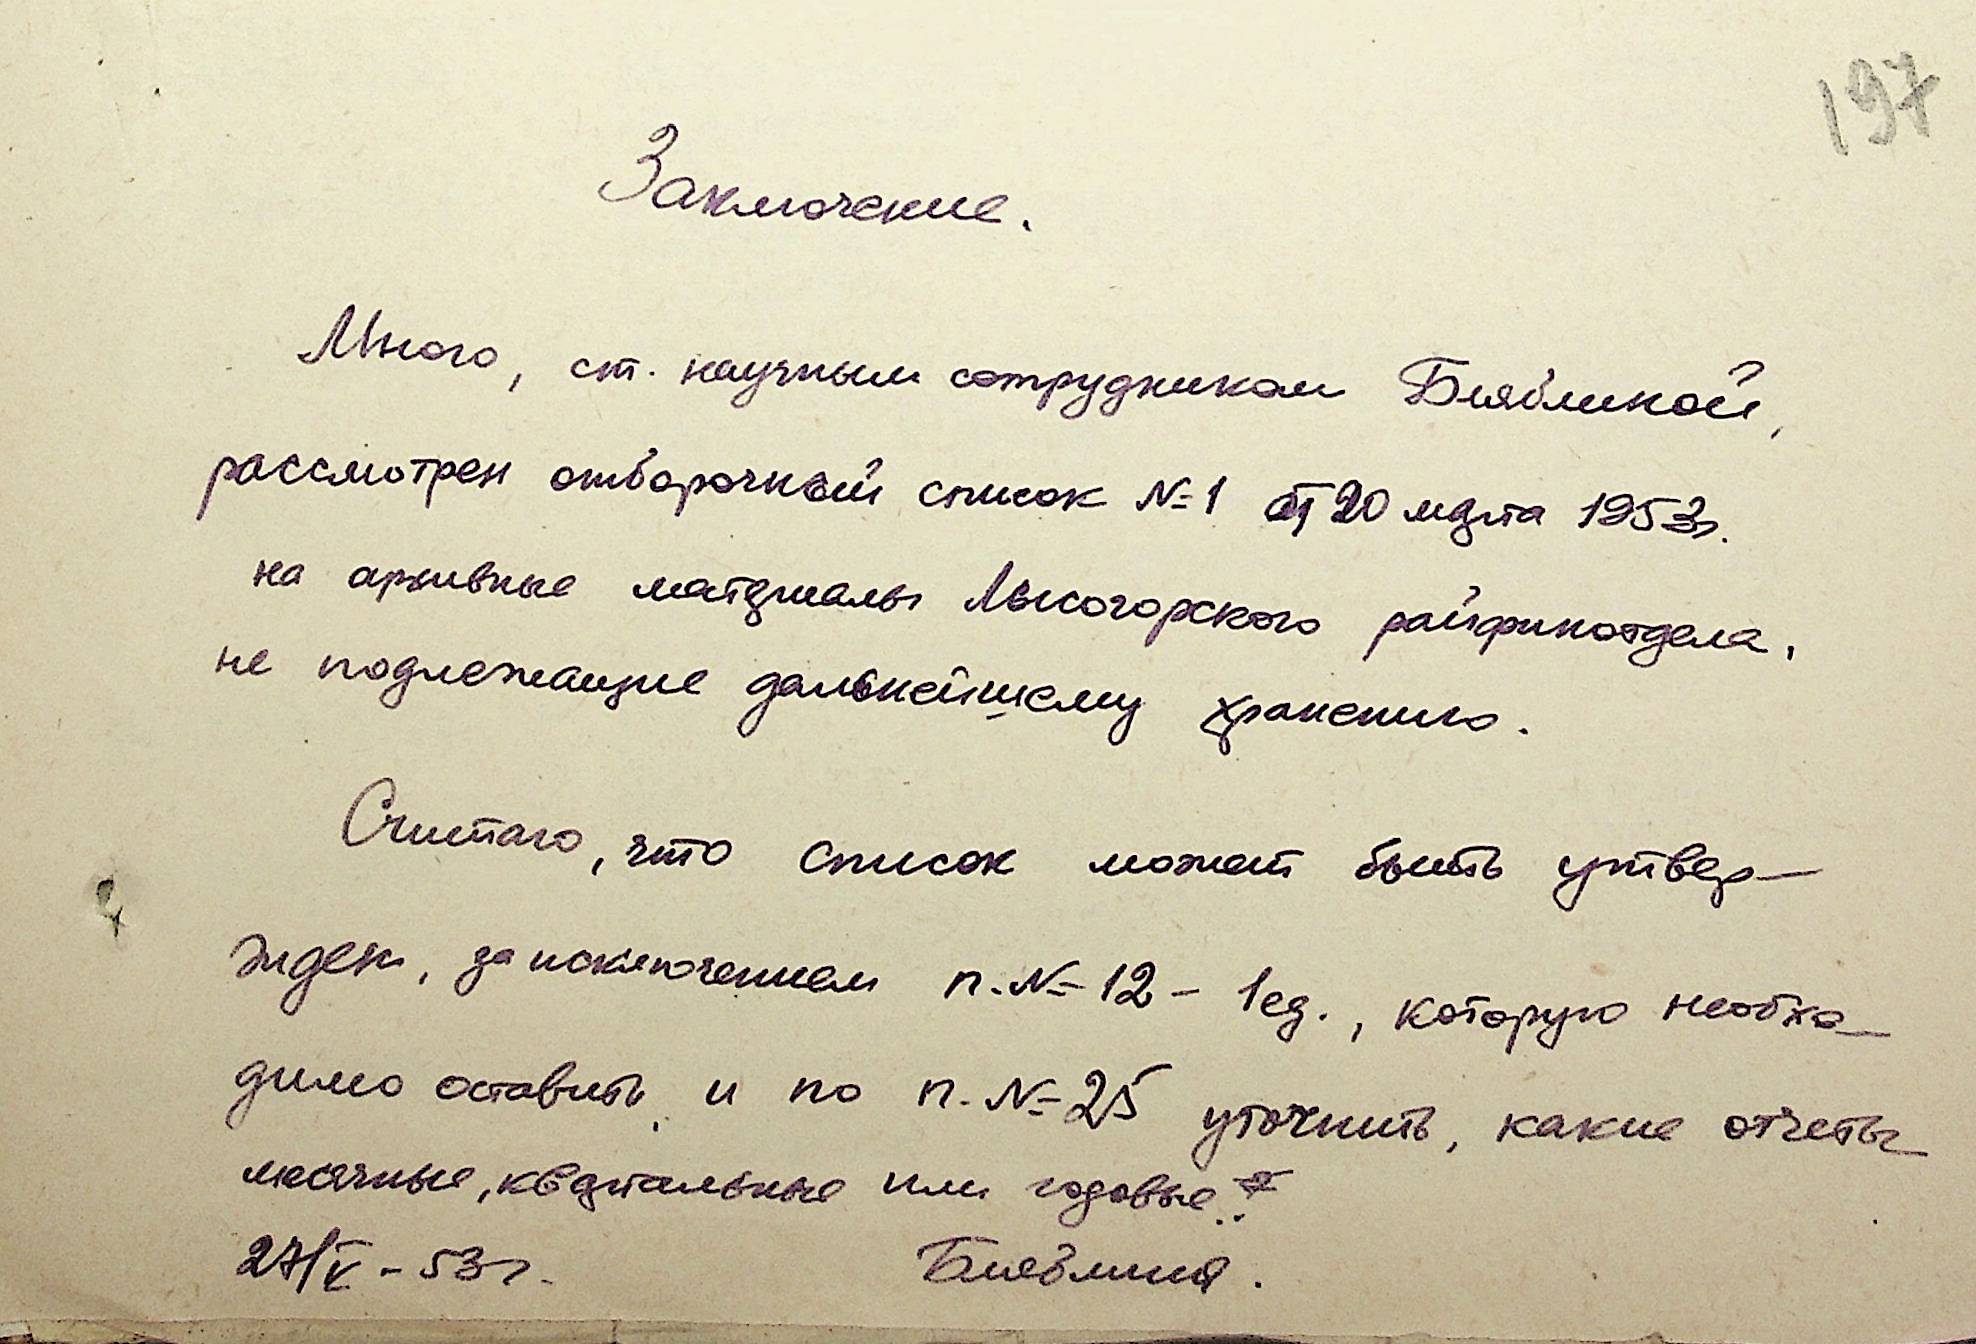 197
Заключение.
Мною, ст. научным сотрудником
рассмотрен отборочный список №1 от 20 марта 1953г.
на архивные материалы Лысогорского райфинотдела,
не подлежащие дальнейшему хранению.
Считаю, что список может быть утвер-
жден, за исключением п.№12 - 1 ед., которую необхо-
димо оставить, и по п.№25 уточнить, какие отчеты
месячные, квартальные или годовые.
27/V - 53г.